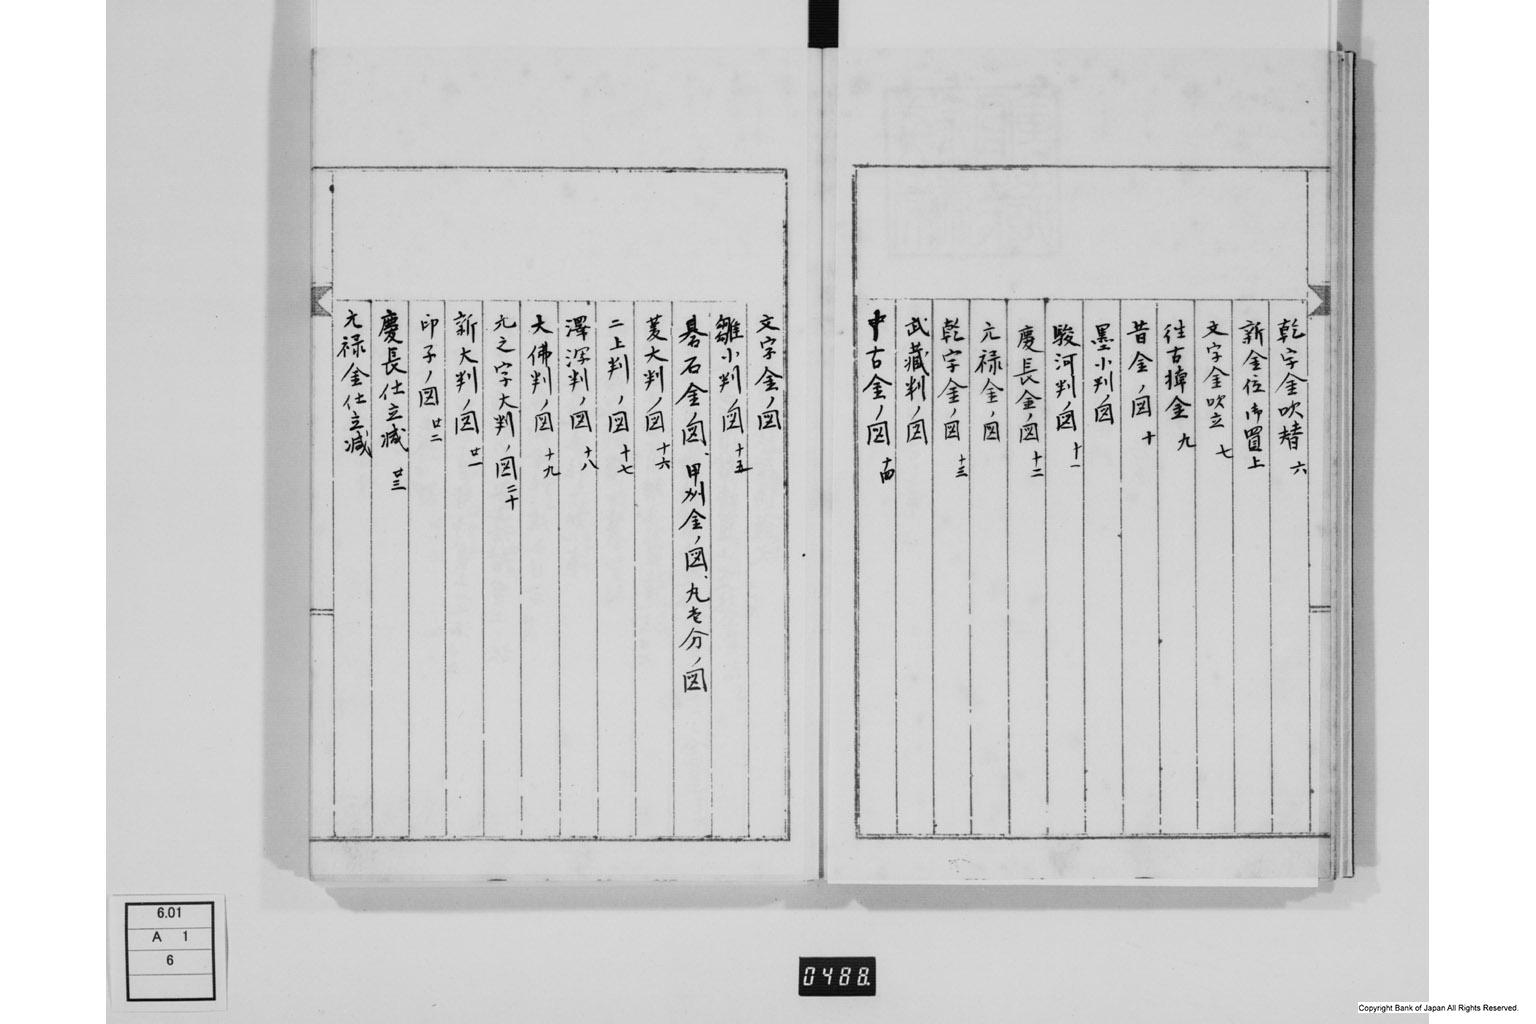 乾字金吹替 六
新金位御買上
文字金吹立 七
往古樟金 九
昔金ノ図 十
墨小判ノ図
駿河判ノ図 十一
慶長金ノ図 十二
元禄金ノ図
乾字金ノ図 十三
武藏判ノ図
中古金ノ図 十四
文字金ノ図
雛小判ノ図 十五
碁石金ノ図、甲州金ノ図、丸壱分ノ図
菱大判ノ図 十六
二上判ノ図 十七
澤瀉判ノ図 十八
大佛判ノ図 十九
元之字大判ノ図 二十
新大判ノ図 廿一
印子ノ図 廿二
慶長仕立減 廿三
元禄金仕立減
6.01
A 1
6
0488
Copyright Bank of Japan All Rights Reserved.